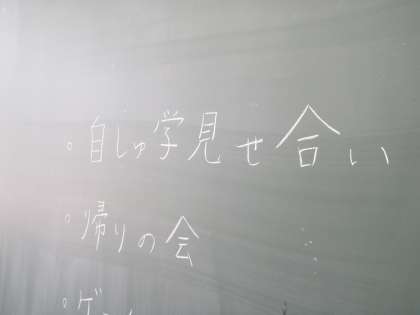 。自じゅ学見せ合い
。帰りの会
。ゲーム